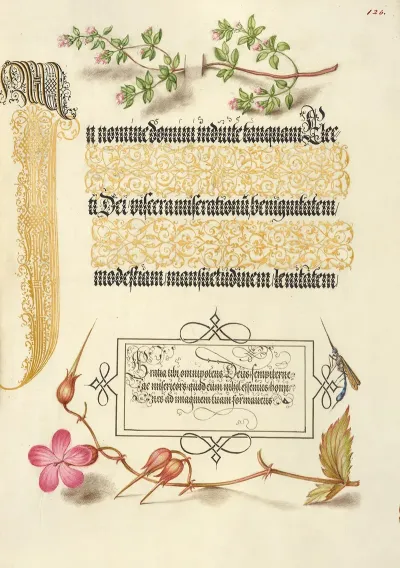 126.
In nomine domini induite tanquam Elec
ti Dei viscera miserationū, benignitatem,
modestiam, mansuetudinem, lenitatem,
Gratia tibi omnipotens Deus sempiterne
ac misericors quod cum nihil essemus homi
nes ad imaginem tuam formaueris